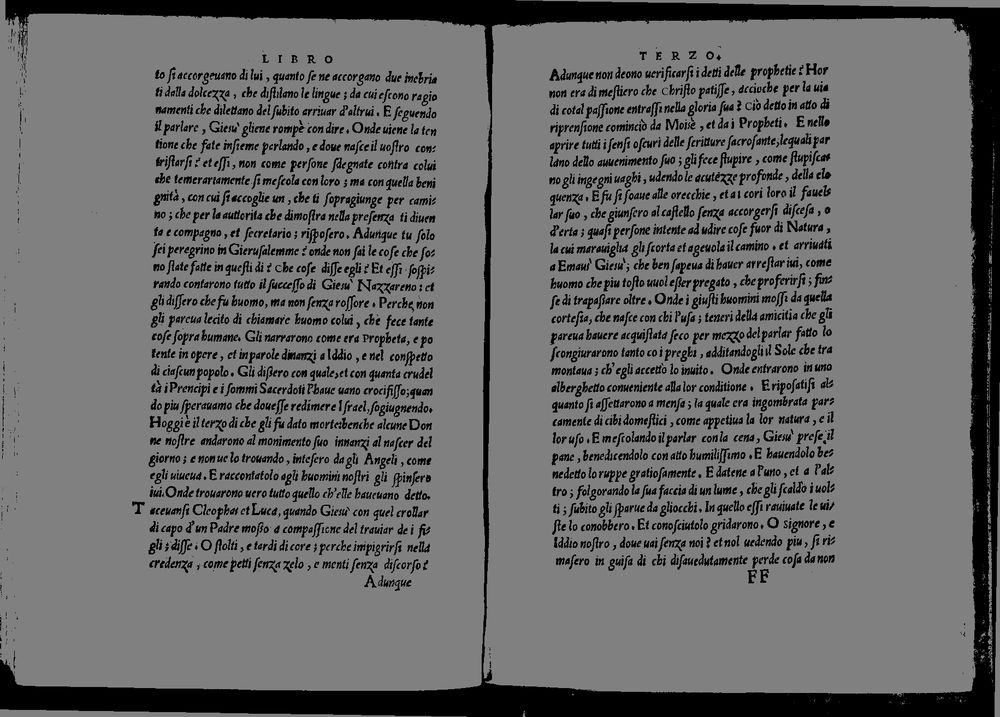 LIBRO
to ſi accorgeuano di lui, quanto ſe ne accorgano due inebria
ti dalla dolcezza, che diſtilano le lingue; da cui eſcono ragio
namenti che dilettano del ſubito arriuar d'altrui. E ſeguendo
il parlare, Gieſu' gliene rompè con dire. Onde uiene la ten
tione che fate inſieme parlando, e doue naſce il uoſtro con:
triſtarſi? et eſſi, non come perſone ſdegnate contra colui
che temerariamente ſi meſcola con loro; ma con quella beni
gnità, con cui ſi accoglie un, che ti ſopragiunge per cami:
no; che per la autorita che dimoſtra nella preſenza ti diuen
ta e compagno, et ſecretario; riſpoſero. Adunque tu ſolo
ſei peregrino in Gieruſalemme? onde non ſai le coſe che ſo:
no ſtate fatte in queſti dì? Che coſe diſſe egli? Et eſſi ſoſpi:
rando contarono tutto il ſucceſſo di Gieſu' Nazzareno: et
gli diſſero che fu huomo, ma non ſenza roſſore. Perche, non
gli pareua lecito di chiamare huomo colui, che fece tante
coſe ſopra humane. Gli narrarono come era Propheta, e po
tente in opere, et in parole dinanzi a Iddio, e nel conſpetto
di ciaſcun popolo. Gli diſſero con quale, et con quanta crudel
tà i Prencipi e i ſommi Sacerdoti l'haue uano crocifiſſo; quan
do piu ſperauamo che doueſſe redimere Iſrael, ſogiugnendo.
Hoggi è il terzo dì che gli fu dato morte: benche alcune Don
ne noſtre andarono al monimento ſuo innanzi al naſcer del
giorno; e non ue lo trouando, inteſero da gli Angeli, come
egli uiueua. E raccontatolo agli huomini noſtri gli ſpinſero
iui. Onde trouarono uero tutto quello ch'elle haueuano detto.
Taceuanſi Cleophas et Luca, quando Gieſu' con quel crollar
di capo d'un Padre moſſo a compaſſione del trauiar de i fi:
gli; diſſe. O ſtolti, e tardi di core; perche impigrirſi nella
credenza, come petti ſenza zelo, e menti ſenza diſcorſo?
Adunque
TERZO.
Adunque non deono uerificarſi i detti delle prophetie? Hor
non era di meſtiero che Chriſto patiſſe, accioche per la uia
di cotal paſſione entraſſi nella gloria ſua? Ciò detto in atto di
riprenſione cominciò da Moiſè, et da i Propheti. E nello
aprire tutti i ſenſi oſcuri delle ſcritture ſacroſante, lequali par
lano dello auuenimento ſuo; gli fece ſtupire, come ſtupiſca:
no gli ingegni uaghi, udendo le acutezze profonde, della elo
quenza. E fu ſi ſoaue alle orecchie, et ai cori loro il fauel:
lar ſuo, che giunſero al caſtello ſenza accorgerſi diſceſa, o
d'erta; quaſi perſone intente ad udire coſe fuor di Natura,
la cui marauiglia gli ſcorta et ageuola il camino. et arriuati
a Emau' Gieſu'; che ben ſapeua di hauer arreſtar iui, come
huomo che piu toſto uuol eſſer pregato, che proferirſi; fin:
ſe di trapaſſare oltre. Onde i giuſti huomini moſſi da quella
corteſia, che naſce con chi l'uſa; teneri della amicitia che gli
pareua hauere acquiſtata ſeco per mezzo del parlar fatto lo
ſcongiurarono tanto co i preghi, additandogli il Sole che tra
montaua; ch'egli accetto lo inuito. Onde entrarono in uno
alberghetto conueniente alla lor conditione. E ripoſatiſi al:
quanto ſi aſſettarono a menſa; la quale era ingombrata par:
camente di cibi domeſtici, come appetiua la lor natura, e il
lor uſo. E meſcolando il parlar con la cena, Gieſu' preſe il
pane, benedicendolo con atto humiliſſimo. E hauendolo be:
nedetto lo ruppe gratioſamente. E datene a l'uno, et a l'al:
tro; folgorando la ſua faccia di un lume, che gli ſcaldò i uol:
ti; ſubito gli ſparue da gliocchi. In quello eſſi rauiuate le ui:
ſte lo conobbero. Et conoſciutolo gridarono. O Signore, e
Iddio noſtro, doue uai ſenza noi? et nol uedendo piu, ſi ri:
maſero in guiſa di chi diſauedutamente perde coſa da non
FF